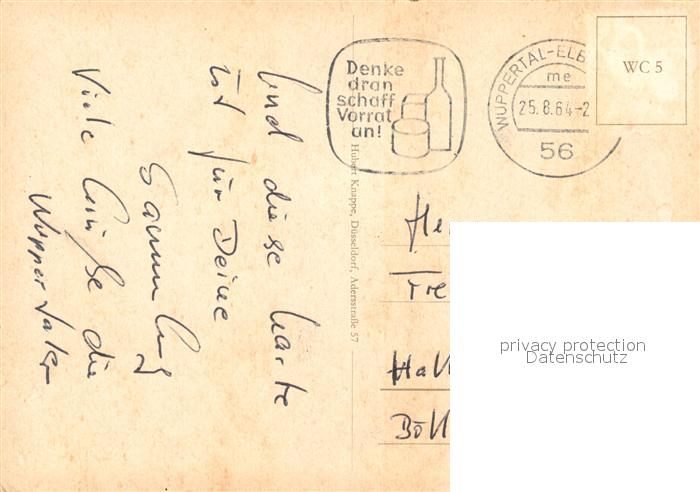 Denke
dran
schaff
Vorrat
an!
WUPPERTAL-ELB
me
25.8.64-2
56
WC 5
Und diese Karte
ist für Deine
Sammlung
Viele Grüße die
Wuppertaler
Hubert Knappe, Düsseldorf, Adersstraße 57
He
Tre
Hall
Böll
privacy protection
Datenschutz